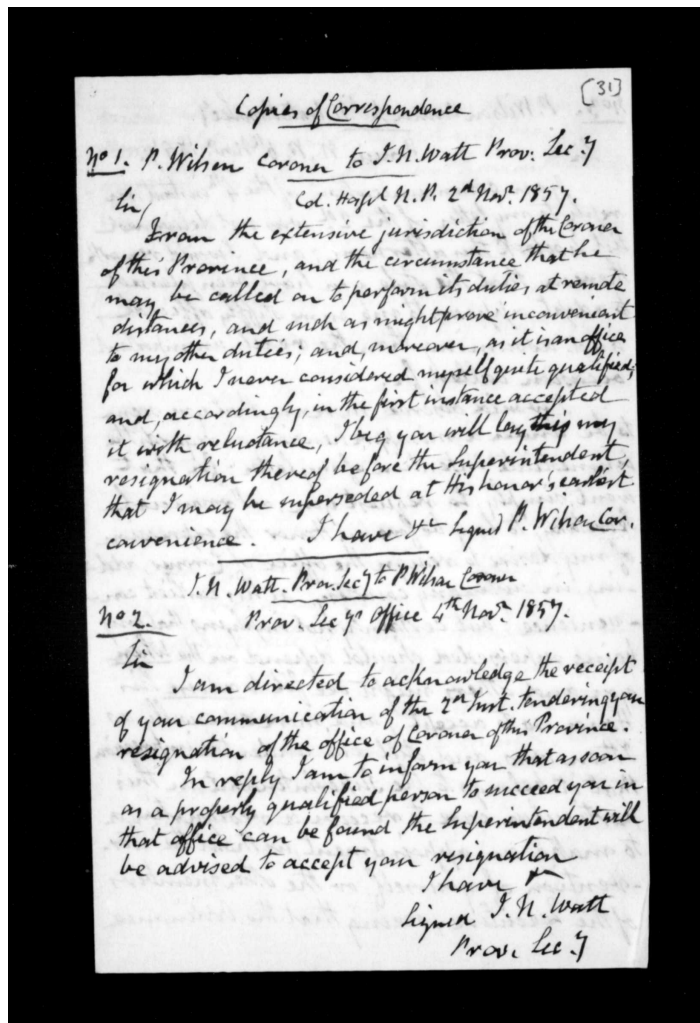 [31]
Copies of Correspondence
No 1. P. Wilson Coroner to I. N. Watt Prov. Sec.y
Col. Hospl N. P. 2nd Novr. 1857.
Sir,
From the extensive jurisdiction of the Coroner
of this Province, and the circumstance that he
may be called on to perform its duties at remote
distances, and such as might prove inconvenient
to my other duties; and, moreover, as it is an office
for which I never considered myself quite qualified;
and, accordingly, in the first instance accepted
it with reluctance, I beg you will lay this my
resignation thereof before the Superintendent,
that I may be superseded at His honor's earliest
convenience. I have &c Signed P. Wilson Cor.
I. N. Watt. Prov. Sec y to P Wilson Coroner
No 2. Prov. Sec ys Office 4th Novr. 1857.
Sir
I am directed to acknowledge the receipt
of your communication of the 2nd Inst. tendering your
resignation of the office of Coroner of this Province.
In reply I am to inform you that as soon
as a properly qualified person to succeed you in
that office can be found the Superintendent will
be advised to accept your resignation
I have &c
Signed I. N. Watt
Prov. Sec.y